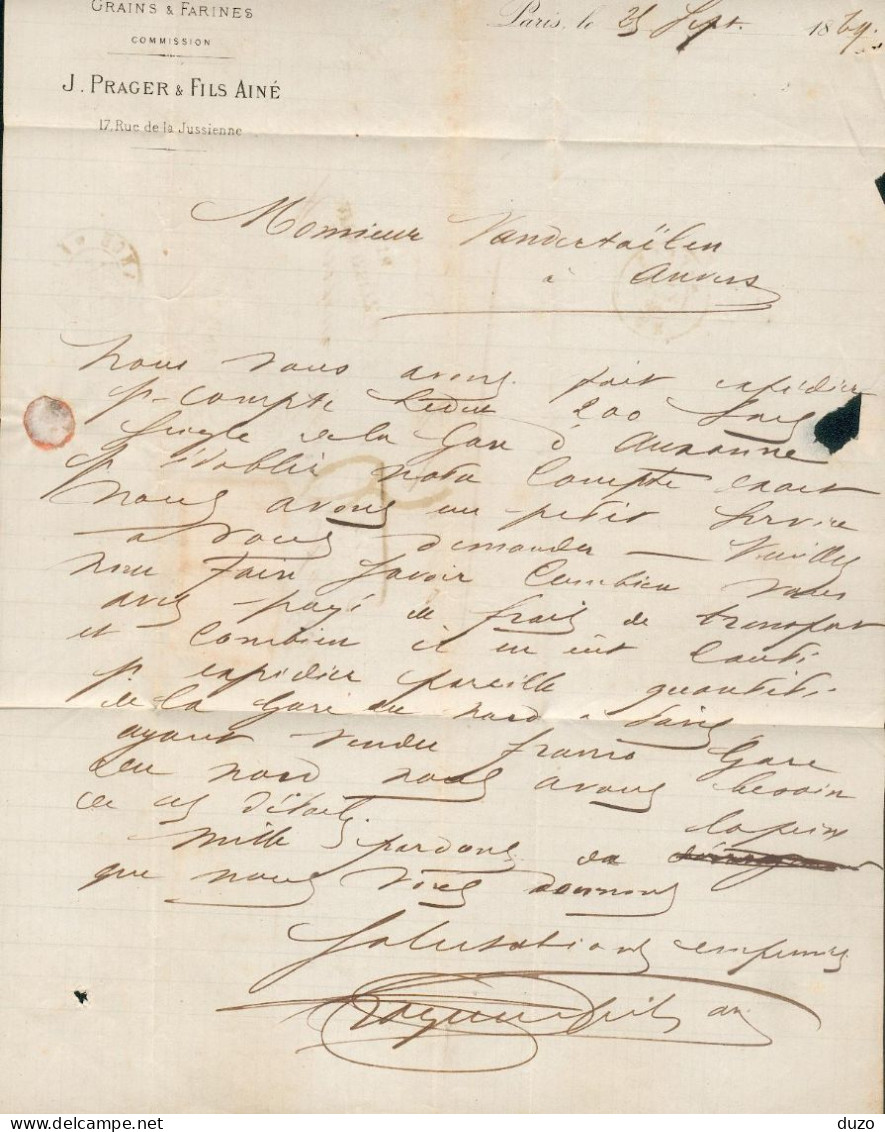 GRAINS & FARINES
COMMISSION
J. PRAGER & FILS AINÉ
17, Rue de la Jussienne
Paris, le 25 Sept. 1869.
Monsieur Vandertaëlen
à Anvers
Nous vous avons fait expédier
pr compte Leduc 200 Sacs
Seigle de la Gare d'Auxonne
pr établir notre Compte exact
nous avons un petit service
à vous demander — Veuillez
nous faire savoir Combien vous
avez payé de frais de transport
et Combien il en eut Couté
pr expédier pareille quantité
de la Gare du Nord à Paris
ayant vendu franco Gare
du Nord nous avons besoin
de ces détails.
Mille pardons de la peine
que nous vous donnons
Salutations empressées
duzo